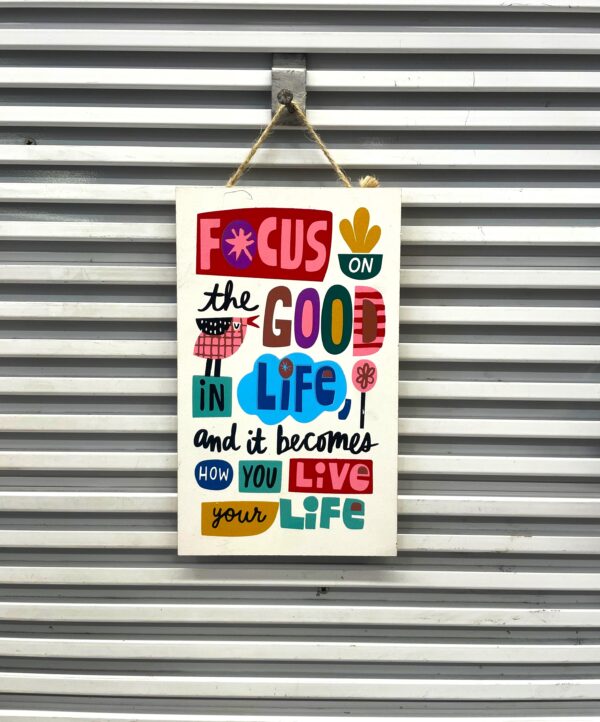 FOCUS ON
the GOOD
IN LIFE,
and it becomes
HOW YOU LIVE
your LIFE